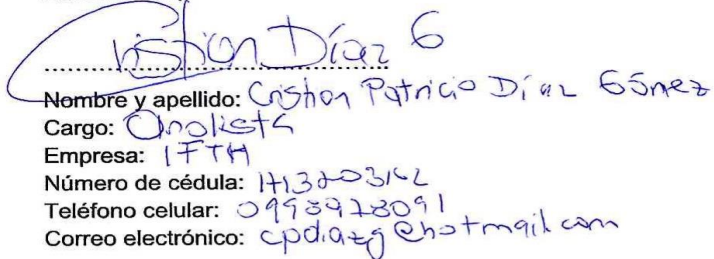 Cristian Díaz G
Nombre y apellido: Cristian Patricio Díaz Gómez
Cargo: Analista
Empresa: IFTH
Número de cédula:
Teléfono celular:
Correo electrónico: cpdiazg@hotmail.com